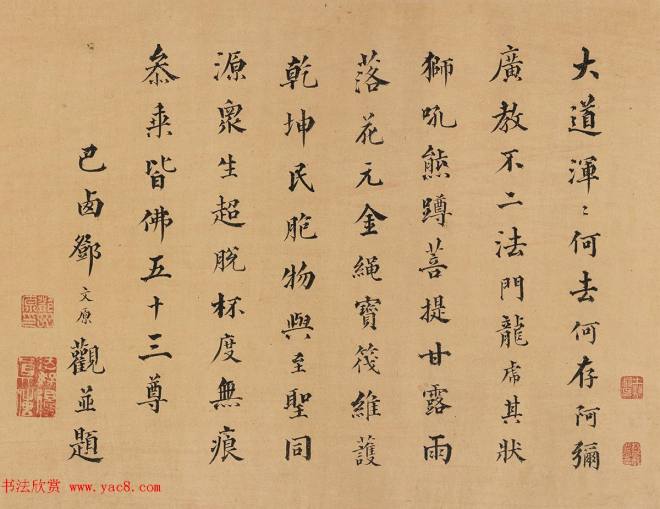 大道渾〻何去何存阿彌
廣教不二法門龍虎其狀
獅吼熊蹲菩提甘露雨
落花元金繩寶筏維護
乾坤民胞物與至聖同
源衆生超脫杯度無痕
叅乘皆佛五十三尊
巳卤鄧文原觀並題
书法欣赏 www.yac8.com